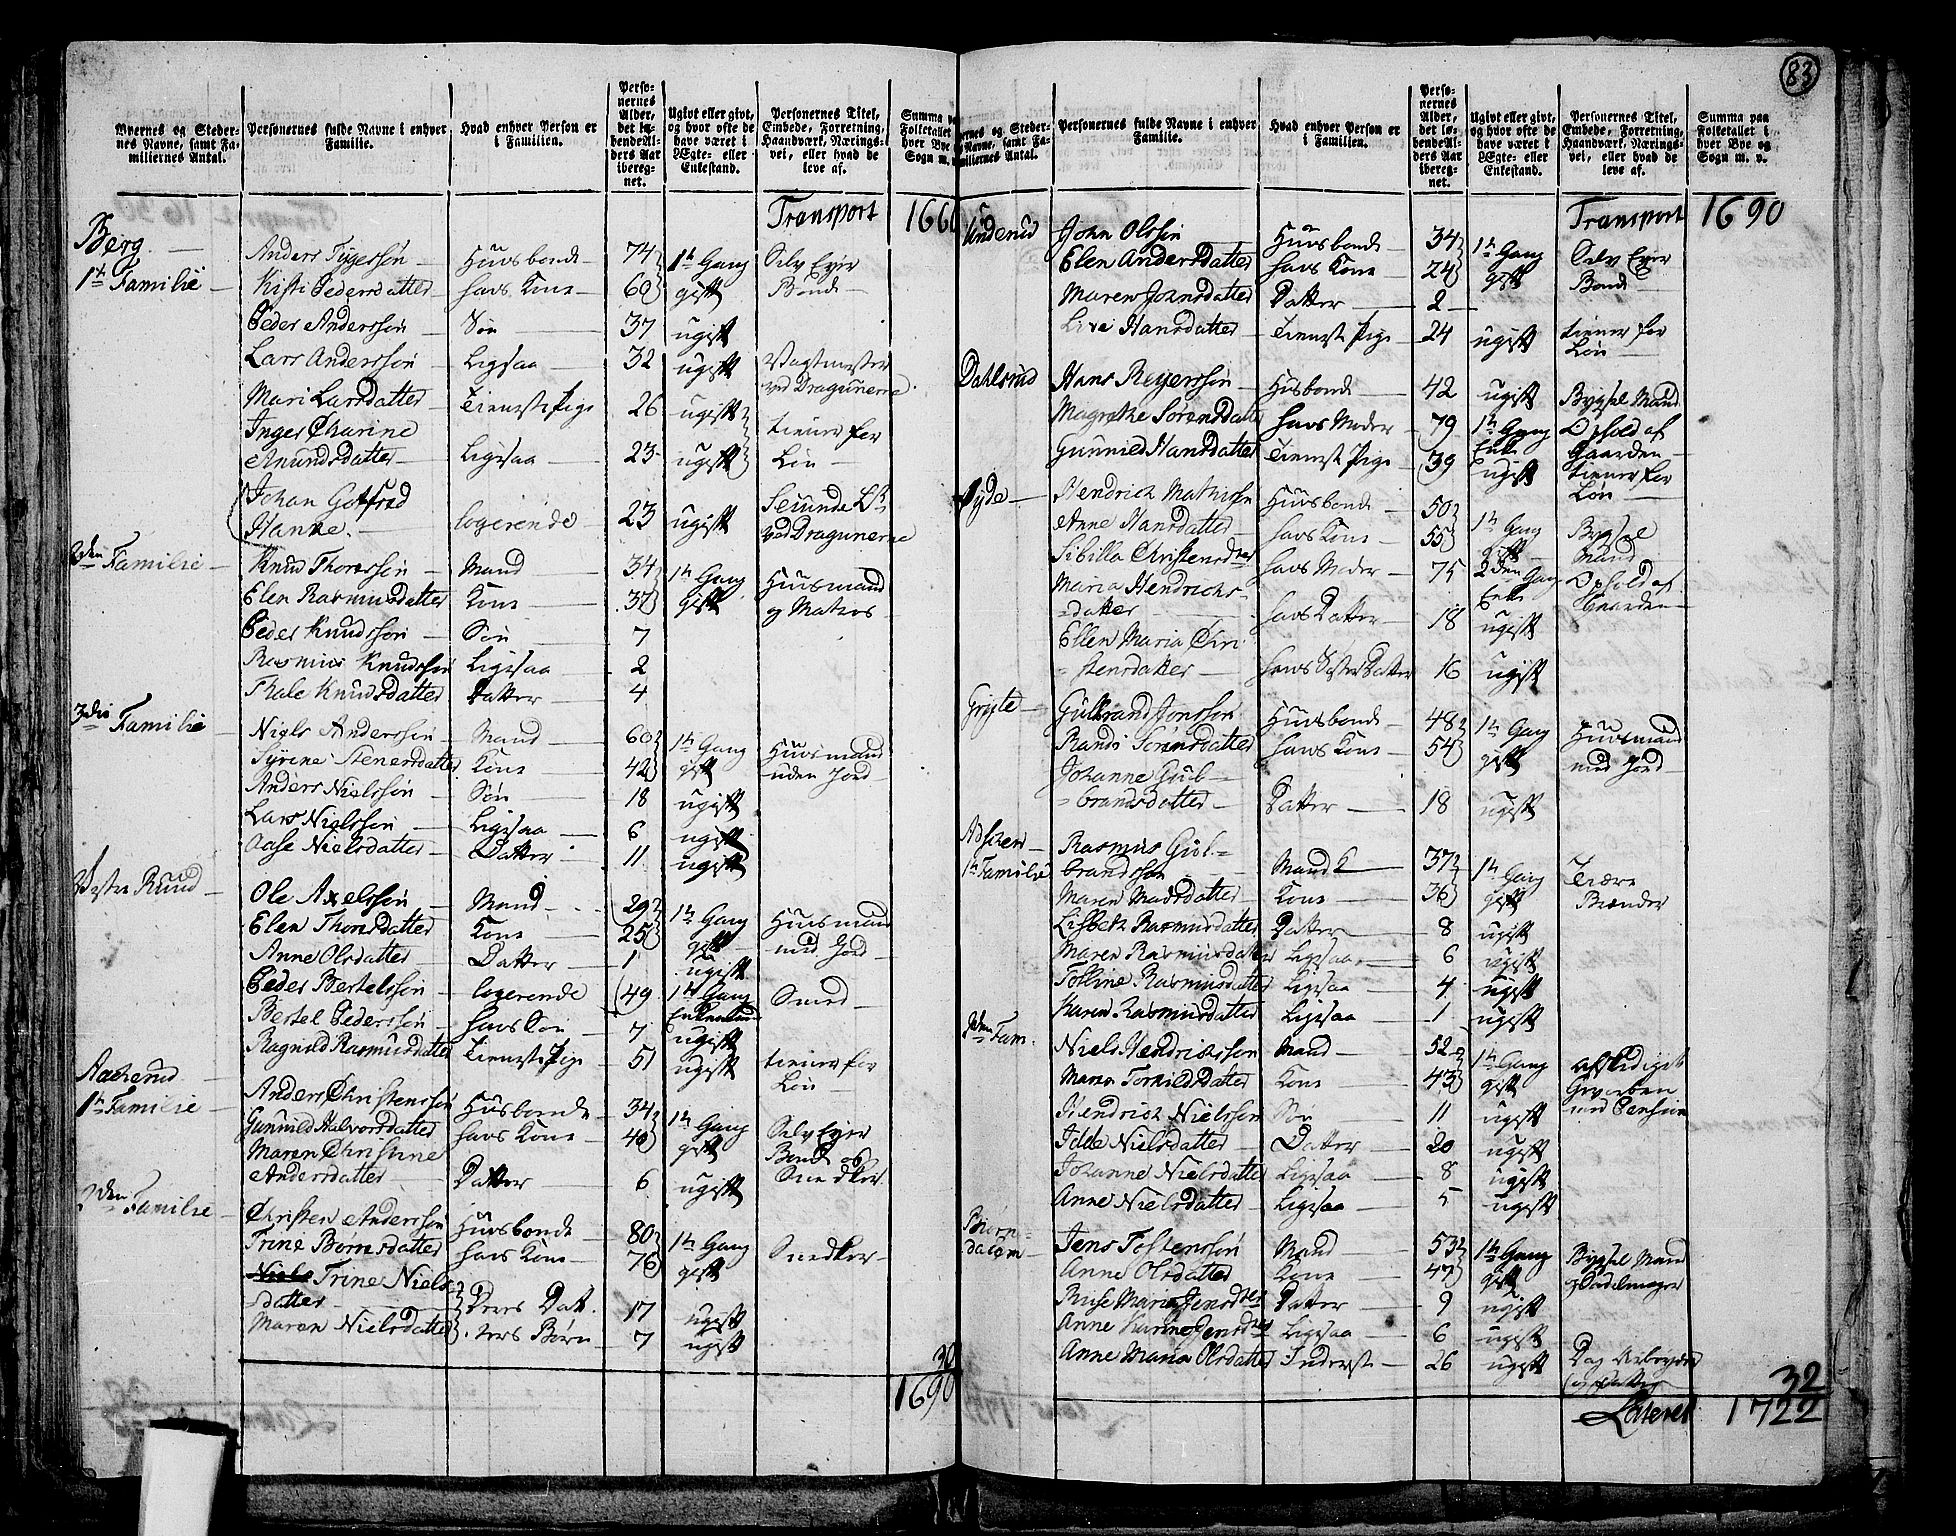 83
Byernes og Steder-
nes Navne, samt Fa-
miliernes Antal.
Personernes fulde Navne i enhver
Familie.
Hvad enhver Person er
i Familien.
Perso-
nernes
Alder,
det lø-
bendeAl-
ders Aar
iberegt-
net.
Ugivt eller givt,
og hvor ofte de
have været i
Ægte- eller
Enkestand.
Personernes Titel,
Embede, Forretning,
Haandværk, Nærings-
vei, eller hvad de
leve af.
Summa paa
Folketallet i
hver Bye og
Sogn m. v.
Transport 166
Berg
1te Familie Anders Tygerssøn Huusbonde 74 1te Gang Selv Eyer
Kisti Pedersdatter hans Kone 60 gift Bonde
Peder Anderssøn Søn 37 ugift
Lars Anderssøn Ligesaa 32 ugift Vagtmester
ved Dragunerne
Mari Larsdatter Tieneste Pige 26 ugift tiener for
Inger Chatrine
Amundsdatter Ligesaa 23 ugift Løn
Johan Gotfred
Hanke logerende 23 ugift Secunde Lt.
ved Dragunerne
2den Familie Knud Thorssøn Mand 34 1te Gang Huusmand
Elen Rasmusdatter Kone 37 gift og Matros
Peder Knudssøn Søn 7
Rasmus Knudssøn Ligesaa 2
Thale Knudsdatter Datter 4
3die Familie Niels Anderssøn Mand 60 1te Gang Huusmand
Syrine Stenersdatter Kone 42 gift uden Jord
Anders Nielssøn Søn 18 ugift
Lars Nielssøn Ligesaa 6 ugift
Aase Nielsdatter Datter 11 ugift
Vester Ruud Ole Axelssøn Mand 29 1te Gang Huusmand
Elen Thorsdatter Kone 25 gift med Jord
Anne Olsdatter Datter 1 ugift
Peder Bertelssøn logerende 49 1te Gang Smed
Enkemand
Bertel Pederssøn hans Søn 7 ugift
Ragnild Rasmusdatter Tieneste Pige 51 ugift tiener for
Løn
Aacherud
1te Familie Anders Christenssøn Huusbonde 34 1te Gang Selv Eyer
Gunnild Halvorsdatter hans Kone 40 gift Bonde og
Maren Christine Snedker
Andersdatter Datter 6 ugift
2den Familie Christen Anderssøn Huusbonde 80 1te Gang Snedker
Trine Børnsdatter hans Kone 76 gift
Niels Trine Niels-
datter Deres Dat- 17 ugift
Maren Nielsdatter ters Børn 7 ugift
30
1690
Byernes og Steder-
nes Navne, samt Fa-
miliernes Antal.
Personernes fulde Navne i enhver
Familie.
Hvad enhver Person er
i Familien.
Perso-
nernes
Alder,
det lø-
bendeAl-
ders Aar
iberegt-
net.
Ugivt eller givt,
og hvor ofte de
have været i
Ægte- eller
Enkestand.
Personernes Titel,
Embede, Forretning,
Haandværk, Nærings-
vei, eller hvad de
leve af.
Summa paa
Folketallet i
hver Bye og
Sogn m. v.
Transport 1690
John Olssøn Huusbonde 34 1te Gang Selv Eyer
Elen Andersdatter hans Kone 24 gift Bonde
Maren Johnsdatter Datter 2
Hansdatter Tieneste Pige 24 ugift tiener for
Løn
Dahlsrud Hans Reyerssøn Husbonde 42 ugift Bygsel Mand
Magrethe Sørensdatter hans Moder 79 1te Gang Ophold af
Enke Gaarden
Gunnild Hansdatter Tieneste Pige 39 ugift tiener for
Løn
Ryde Hendrich Mathissøn Huusbonde 50 1te Gang Bygsel
Anne Hansdatter hans Kone 55 gift Mand
Sibilla Christensdter hans Moder 75 2den Gang Ophold af
Enke Gaarden
Maria Hendrichs-
datter hans Datter 18 ugift
Ellen Maria Chri-
stensdatter hans Søster Datter 16 ugift
Grijte Gulbrand Jonssøn Huusbonde 48 1te Gang Huusmand
Randi Sørensdatter hans Kone 54 gift med Jord
Johanne Gul-
brandsdatter Datter 18 ugift
Rasmus Gul-
1te Familie brandssøn Mand 37 1te Gang Tiære
Maren Madsdatter Kone 36 gift Brænder
Lisbeth Rasmusdatter Datter 8 ugift
Maren Rasmusdatter Ligesaa 6 ugift
Rasmusdatter Ligesaa 4 ugift
Karen Rasmusdatter Ligesaa 1 ugift
2den Fam. Niels Hendrichssøn Mand 52 1te Gang afskediget
Maren Tornildsdatter Kone 43 gift
Hendrich Nielssøn Søn 11 ugift med Pension
Idde Nielsdatter Datter 20 ugift
Johanne Nielsdatter Ligesaa 8 ugift
Anne Nielsdatter Ligesaa 5 ugift
Biørn-
dalen Jens Tostenssøn Mand 53 1te Gang Bygsel Mand
Anne Olsdatter Kone 47 gift og Sadelmager
Maria Jensdter Datter 9 ugift
Anne Karine Jensdter Ligesaa 6 ugift
Anne Maria Olsdatter Inderste 26 ugift Dag Arbeyder
32
Lateret 1722